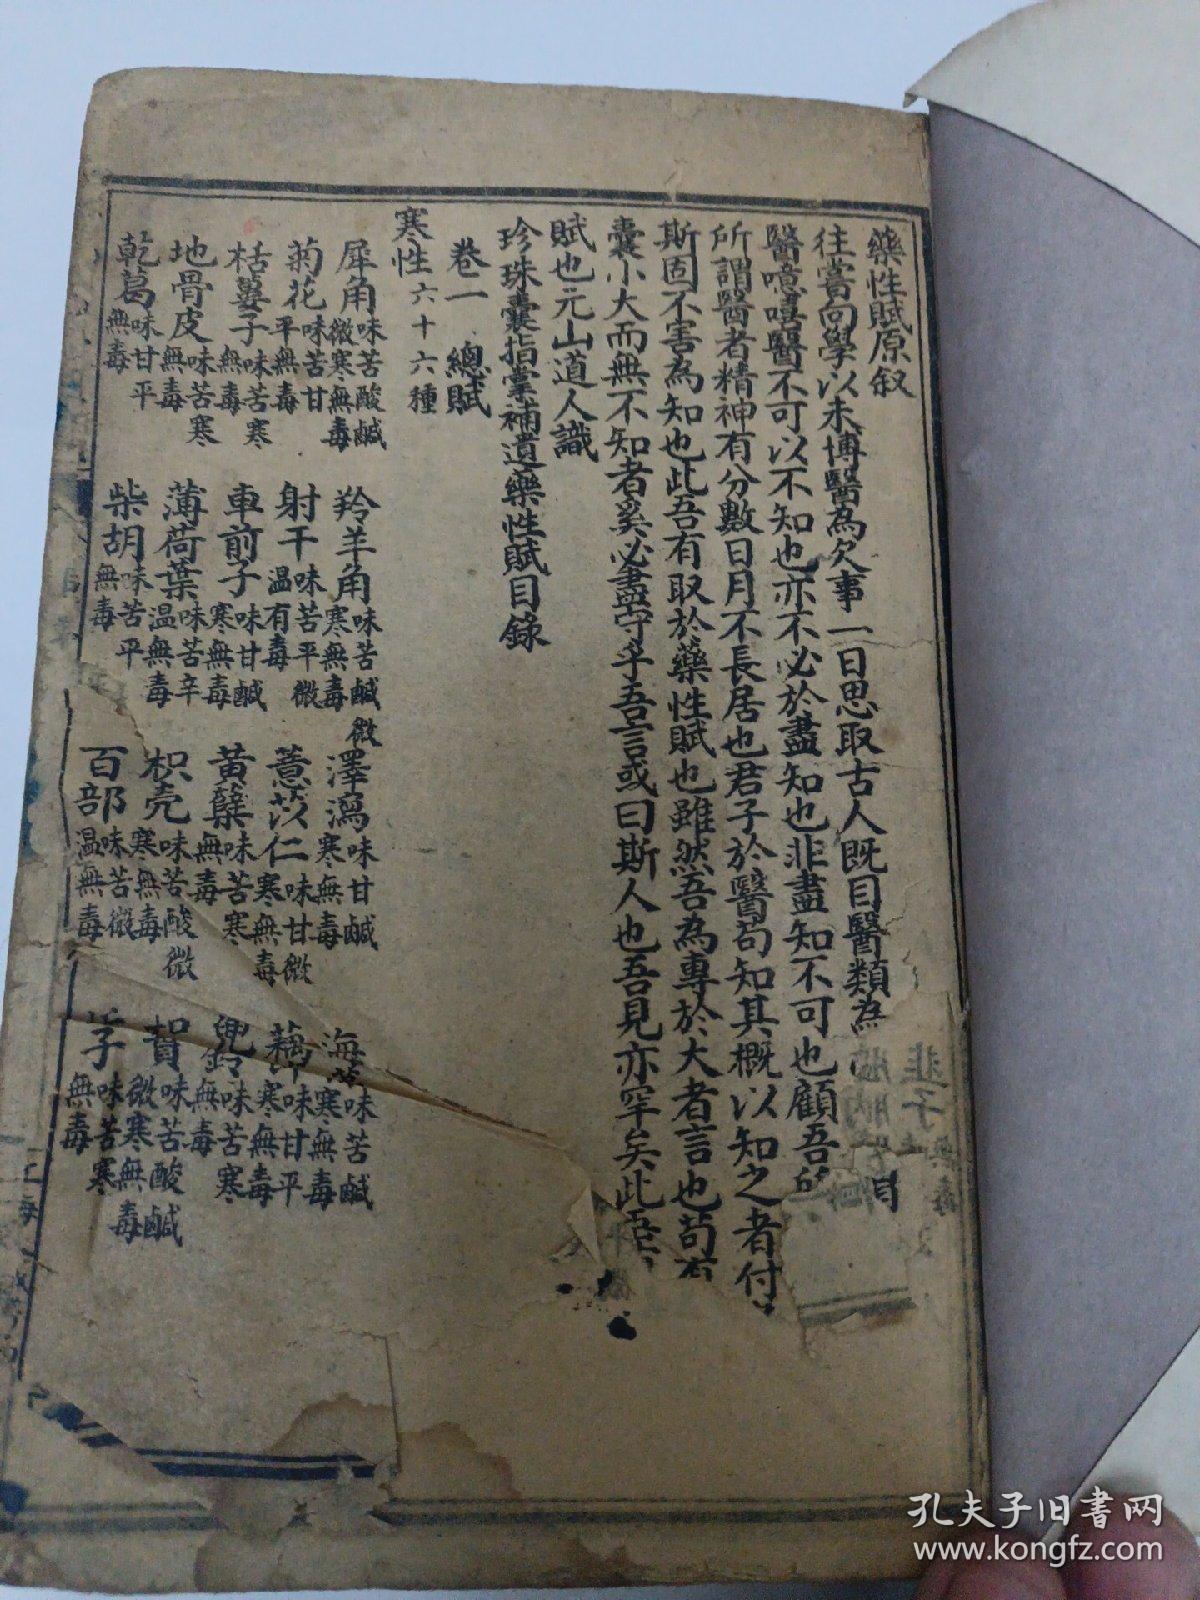 藥性賦原叙
往嘗向學以未博醫為欠事一日思取古人既目醫類為
醫噫嘻醫不可以不知也亦不必於盡知也非盡知不可也顧吾
所謂醫者精神有分數日月不長居也君子於醫苟知其概以知之者付
斯固不害為知也此吾有取於藥性賦也雖然吾為專於大者言也苟有
囊小大而無不知者奚必盡守乎吾言或曰斯人也吾見亦罕矣此
賦也元山道人識
珍珠囊指掌補遺藥性賦目錄
卷一 總賦
寒性六十六種
犀角味苦酸鹹微寒無毒 羚羊角味苦鹹微寒無毒 澤瀉味甘鹹寒無毒 海味苦鹹寒無毒
菊花味苦甘平無毒 射干味苦平微温有毒 薏苡仁味甘微寒無毒 藕味甘平寒無毒
栝蔞子味苦寒無毒 車前子味甘鹹寒無毒 黃蘗味苦寒無毒 兜鈴味苦寒無毒
地骨皮味苦寒無毒 薄荷葉味苦辛温無毒 枳壳味苦酸微寒無毒 枳實味苦酸鹹微寒無毒
乾葛味甘平無毒 柴胡味苦平無毒 百部味苦微温無毒 子味苦寒無毒
韭子無毒
孔夫子旧书网
www.kongfz.com